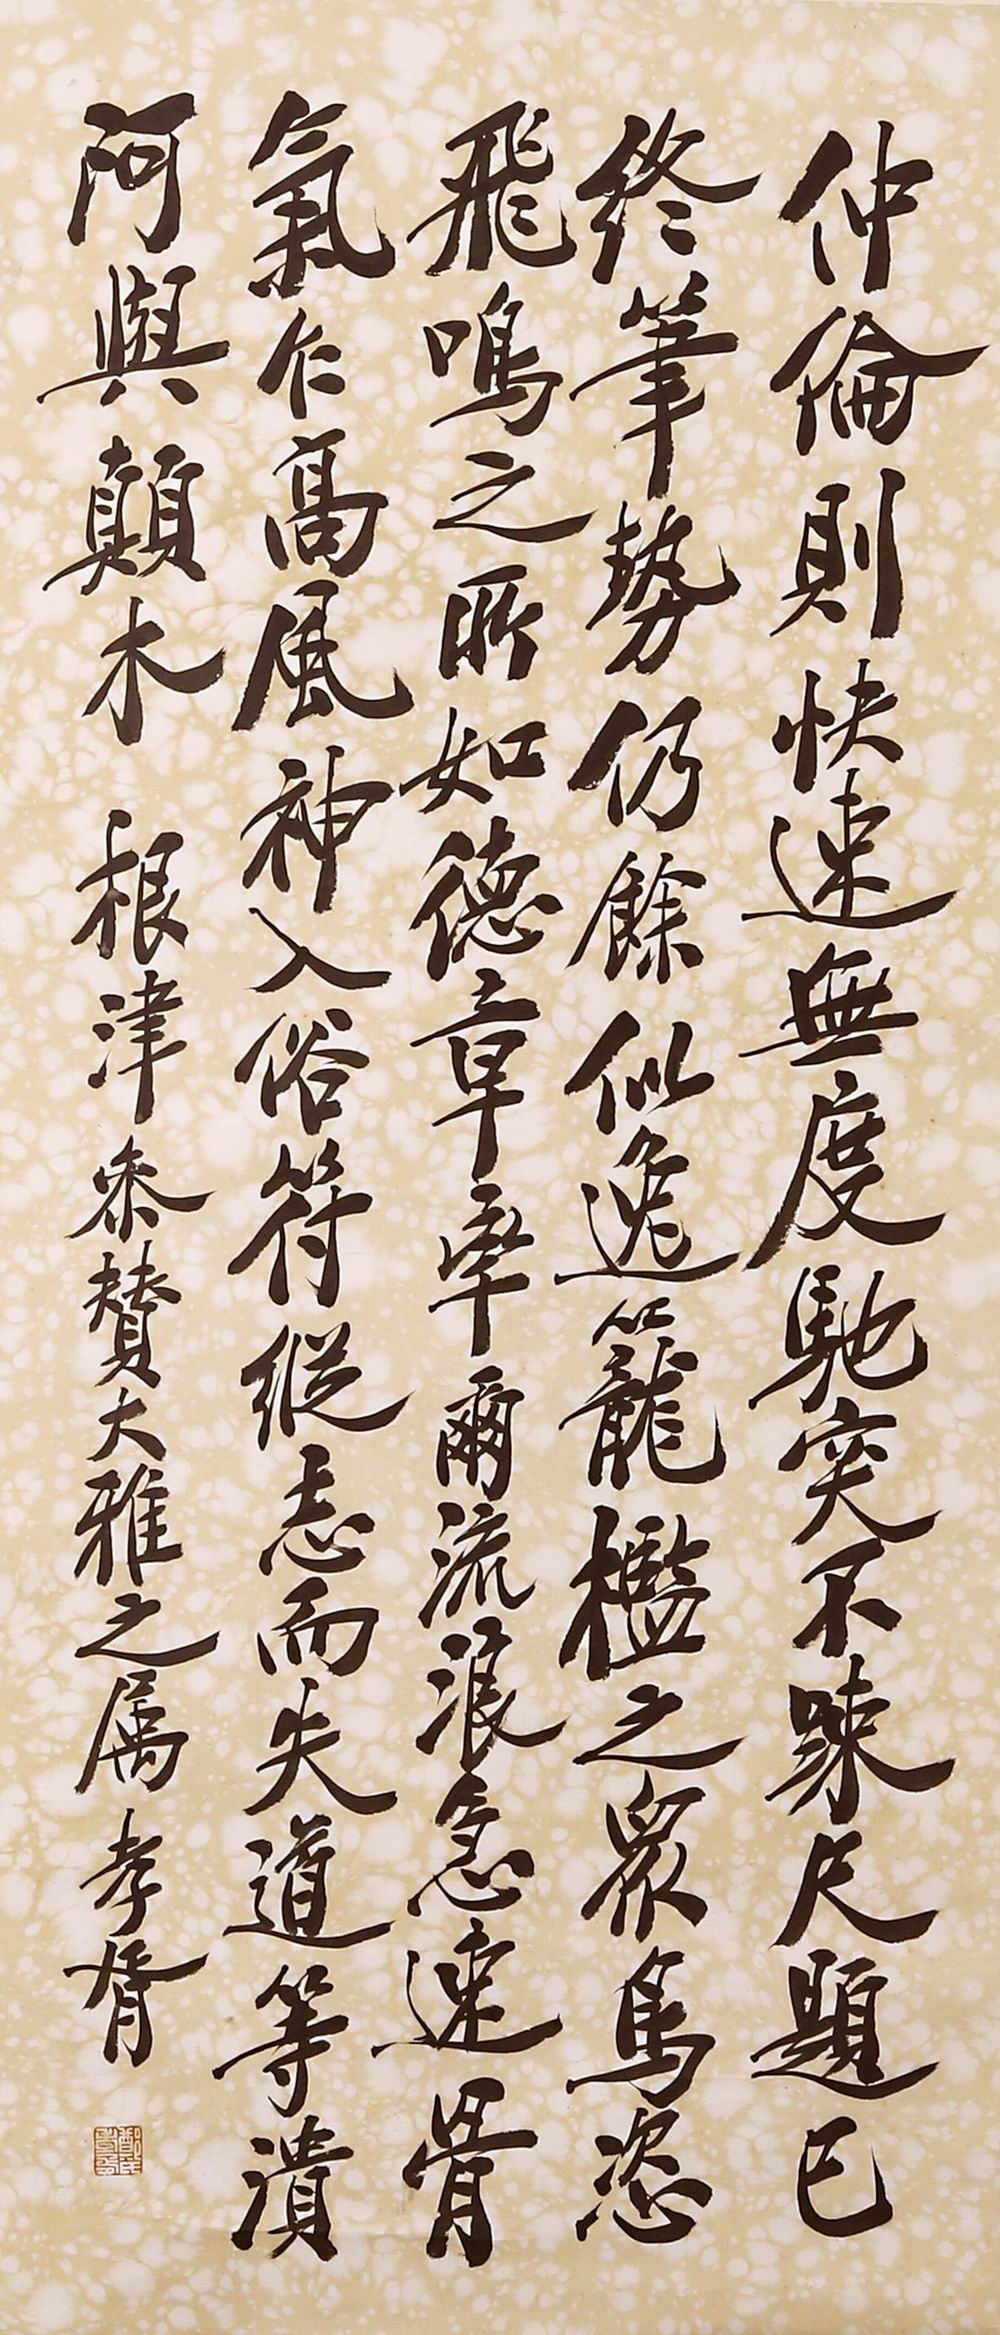 仲倫則快速無度馳突不疎尺題已
終筆勢仍餘似逸籠檻之眾鳥恣
飛鳴之所如德章率爾流浪急速骨
氣乍高風神入俗符縱志而失道等潰
河與顛木 根津参賛大雅之属 孝胥
鄭氏孝胥